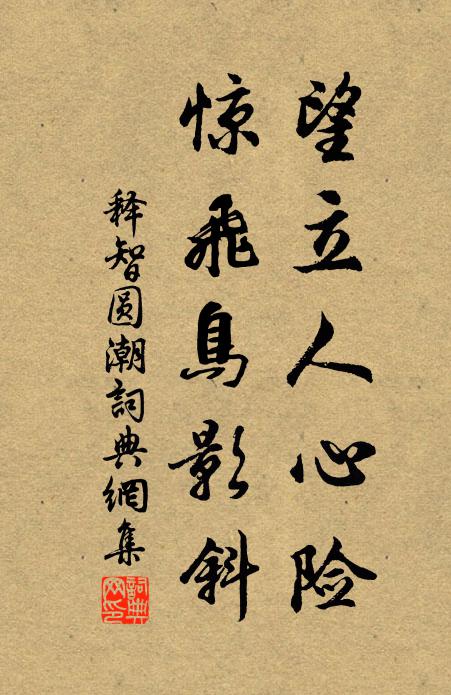 望立人心险
惊飞鸟影斜
释智圆潮詞典網集
詞典网印